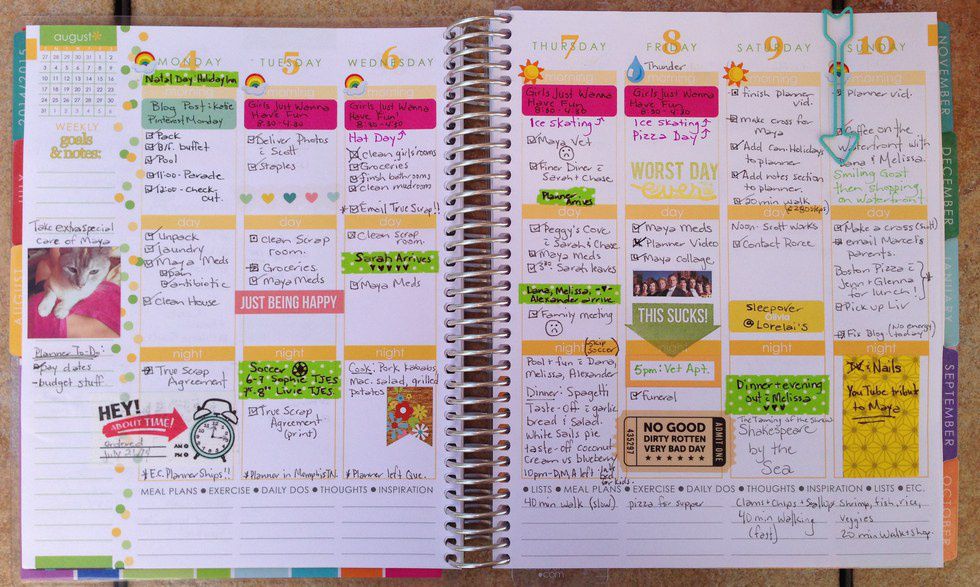 august
WEEKLY
goals
& notes:
Take extra special
care of Maya
Planner To-Do:
pay dates
-budget stuff.
HEY!
ABOUT TIME!
ordered
AM
PM
JULY
AUGUST
4
MONDAY
Natal Day-Holiday Inn
morning
Blog Post: Katie
Pinterest Monday
Pack
B/f. buffet
Pool
11:00-Parade
12:00-check-
out.
day
Unpack
laundry
Maya Meds
-pain
-antibiotic
Clean House
night
True Scrap
Agreement
*E.C. Planner Ships!!
5
TUESDAY
morning
Girls Just Wanna
Have Fun
8:30-4:30
Deliver Photos
c̄ Scott
Staples
day
Clean Scrap
room.
Groceries
Maya Meds
JUST BEING HAPPY
night
Soccer
6-7 Sophie TJES
7-8 Livie TJES
True Scrap
Agreement
(print)
*Planner in Memphis TN.
6
WEDNESDAY
morning
Girls Just Wanna
Have Fun
8:30-4:30
Hat Day
clean girls' rooms
Groceries
finish bathrooms
clean mudroom
*Email True Scrap!!
day
Clean Scrap
room.
Sarah Arrives
Maya Meds
night
Cook: Pork Kababs,
Mac. salad, grilled
potatoes
*Planner left Que.
MEAL PLANS ● EXERCISE ● DAILY DOS ● THOUGHTS ● INSPIRATION
7
THURSDAY
morning
Girls Just Wanna
Have Fun
8:30-4:30
Ice skating
Maya Vet
Finer Diner c̄
Sarah + Chase
Planner
Arrives
day
Peggy's Cove
c̄ Sarah & Chase
Maya meds
3:30 Sarah leaves
Dana, Melissa,
Alexander arrive
Family meeting
night
Skip
Soccer
Pool + fun c̄ Dana,
Melissa, Alexander
Dinner: Spagetti
Taste-Off c̄ garlic
bread & Salad.
White Sails pie
taste-off Coconut
Cream vs blueberry
10pm-DMA left
40 min walk (slow)
8
FRIDAY
Thunder
morning
Girls Just Wanna
Have Fun
8:30-4:30
Ice skating
Pizza Day
WORST DAY
ever
day
Maya meds
Planner Video
Maya collage
THIS SUCKS!
night
5pm: Vet Apt.
Funeral
NO GOOD
DIRTY ROTTEN
VERY BAD DAY
ADMIT ONE
435297
pizza for supper
9
SATURDAY
morning
finish planner
vid.
make cross for
Maya
Add Can. Holidays
to planner
Add notes section
to planner.
20 min walk
day
Noon- Scott Works
Contact Roree
Sleepover
Olivia
@ Lorelai's
night
Dinner + evening
out c̄ Melissa
The Taming of the Shrew
Shakespeare
by the
Sea
Clams + Chips + Scallops
40 min walking
(fast)
10
SUNDAY
Planner vid.
Coffee on the
waterfront with
Dana & Melissa.
Smiling Goat
then shopping
on waterfront
day
Make a cross
email Marcel's
parents.
Boston Pizza c̄
Jenn + Glenna
for lunch!
Pick up Liv
Fis Blog (No energy
today!)
night
Nails
YouTube tribute
to Maya
Shrimp, fish, rice,
veggies
20 min walk + shop
● LISTS ● MEAL PLANS ● EXERCISE ● DAILY DOS ● THOUGHTS ● INSPIRATION ● LISTS ● ETC.
NOVEMBER
DECEMBER
JANUARY
SEPTEMBER
OCTOBER
.com